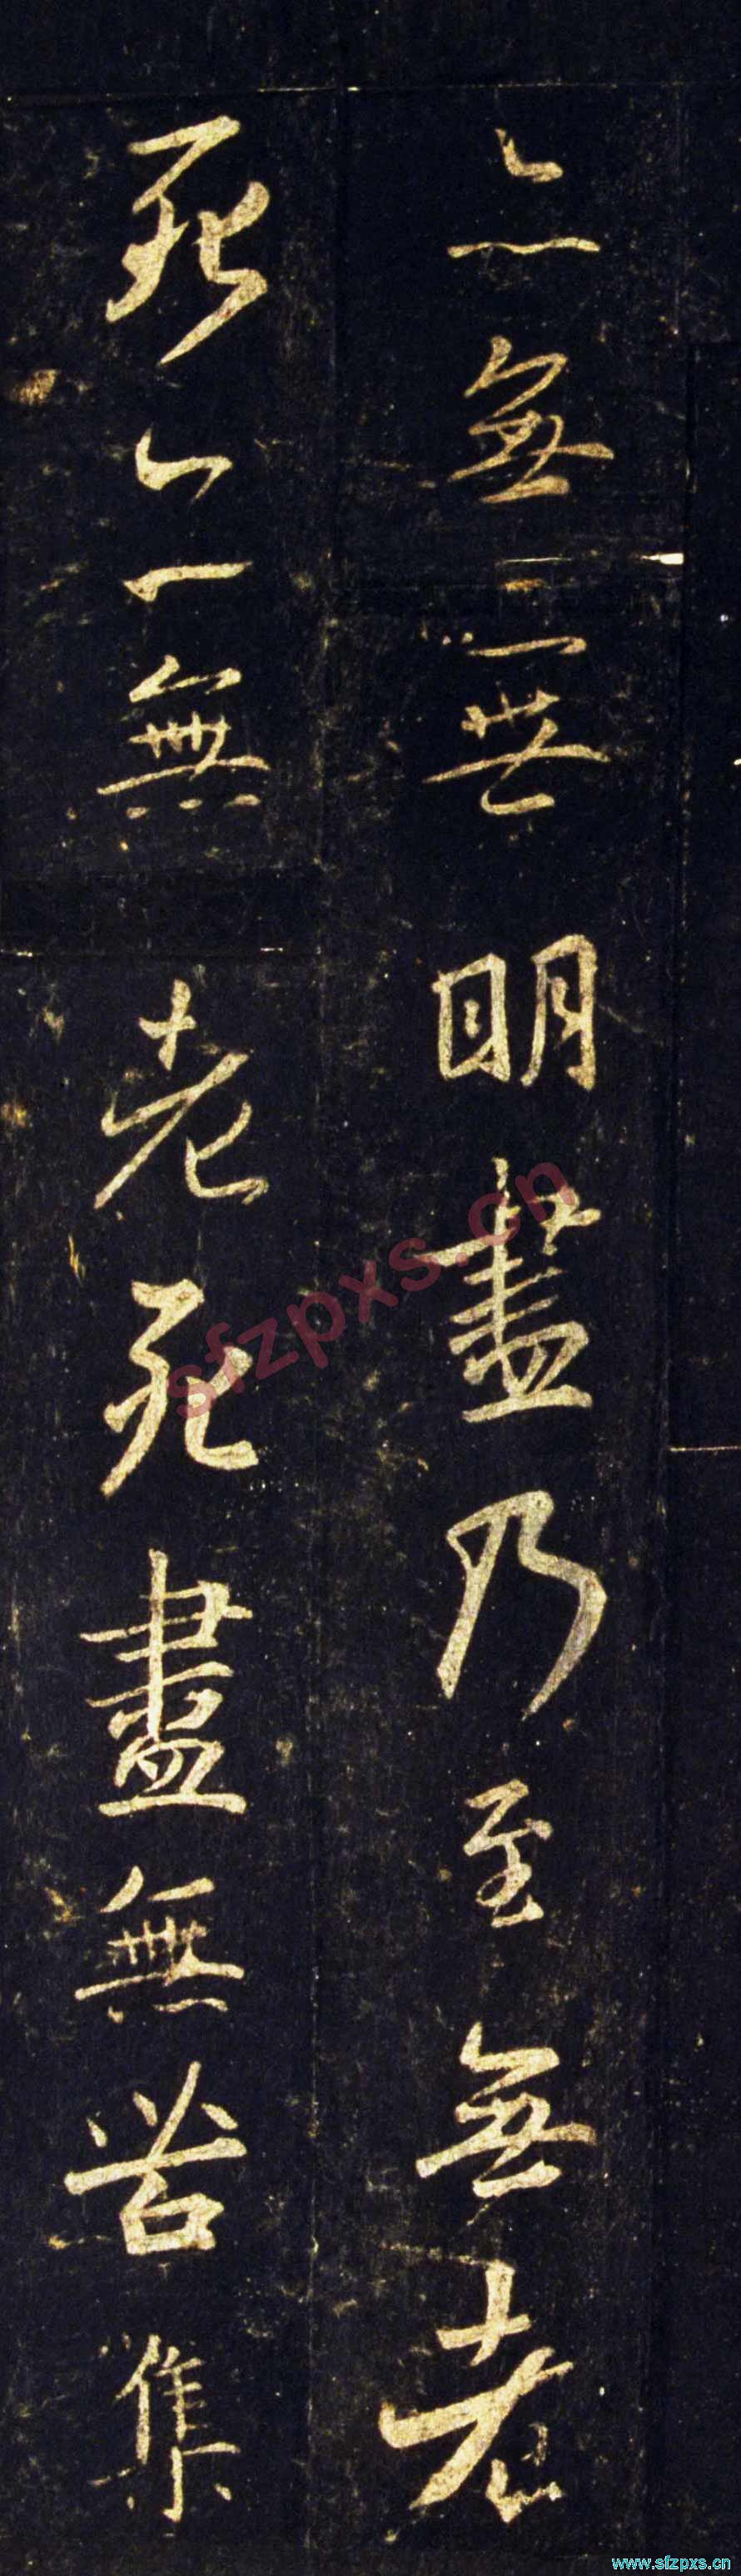 亦無無明盡乃至無老
死亦無老死盡無苦集
sfzpxs.cn
www.sfzpxs.cn